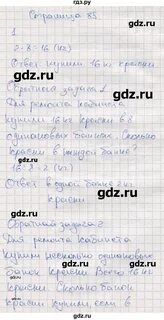 Страница 85.
1
2·8=16 (кг)
Ответ купили 16 кг краски
Обратная задача 1
Для ремонта кабинета
купили 16 кг краски в 8
одинаковых банках. Сколько
краски в каждой банке?
16:8=2 (кг)
Ответ в одной банке 2 кг
краски.
Обратная задача 2
Для ремонта кабинета
купили несколько одинаковых
банок краски. Всего 16 кг
краски. Сколько банок
краски купили если в
gdz.ru
gdz.ru
gdz.ru
gdz.ru
gdz.ru
gdz.ru
gdz.ru